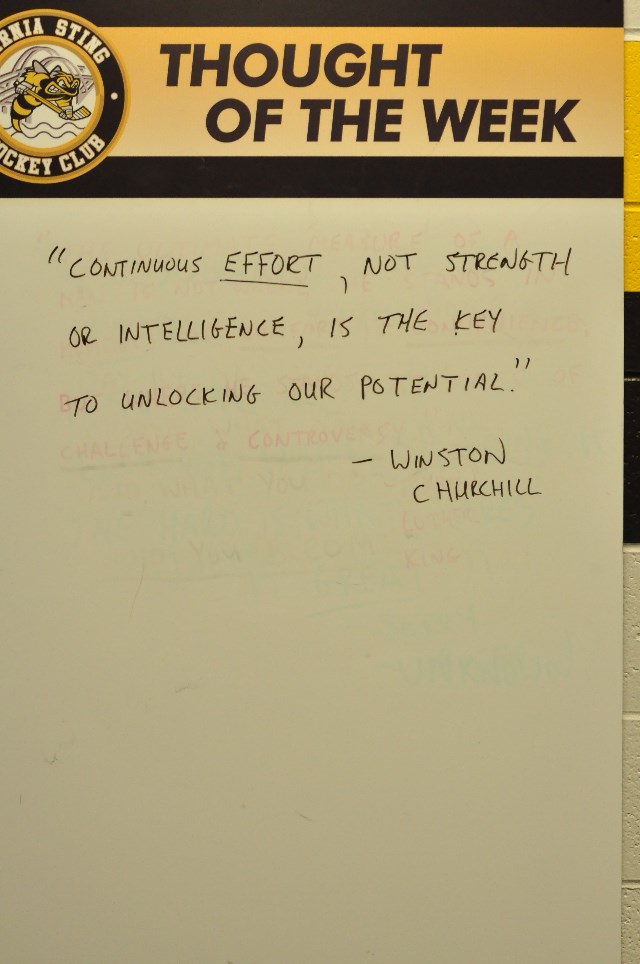 RNIA STING
OCKEY CLUB
THOUGHT
OF THE WEEK
"CONTINUOUS EFFORT, NOT STRENGTH
OR INTELLIGENCE, IS THE KEY
TO UNLOCKING OUR POTENTIAL."
- WINSTON
CHURCHILL
CHALLENGE & CONTROVERSY
WHAT YOU
KING